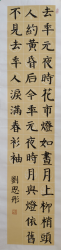 去年元夜時花市燈如晝月上柳梢頭
人約黃昏后今年元夜時月與燈依舊
不見去年人淚滿春衫袖
劉思彤